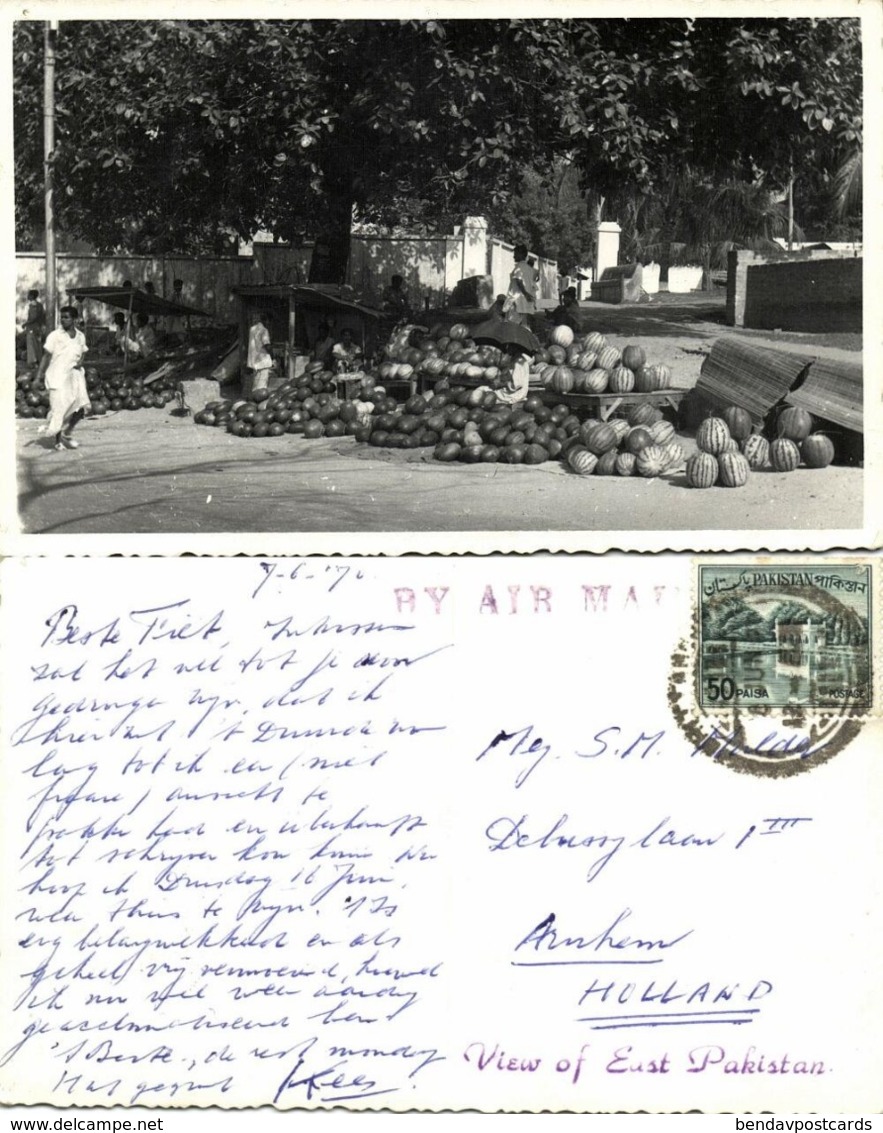 7-6-'70
BY AIR MAI
PAKISTAN
پاکستان PAKISTAN পাকিস্তান
50 PAISA POSTAGE
Beste Fiet, Intussen
zal het wel tot je door
gedrongen zijn, dat ik
hier
lang tot ik een (niet
figure) ansicht te
pakken had en überhaupt
tot schrijven kon komen. Nu
hoop ik Dinsdag 16 Juni,
weer thuis te zijn. 't Is
erg belangwekkend en als
geheel vrij vermoeiend, hoewel
ik nu wel weer aardig
geacclimatiseerd ben.
't Beste, de rest mondeling
Hart. gegroet Kees
Mej. S.M. Mulder
Debussylaan 1 III
Arnhem
HOLLAND
View of East Pakistan.
delcampe.net
bendavpostcards